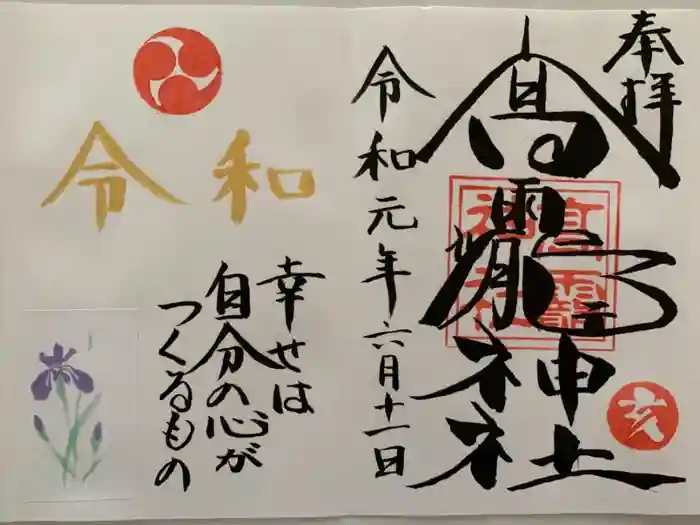 奉拝
高龗神社
高龗神社
亥
令和元年六月十一日
令和
幸せは
自分の心が
つくるもの